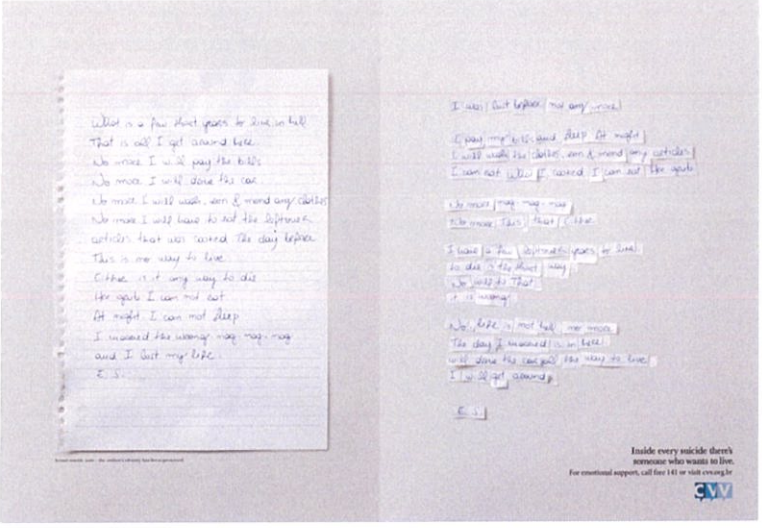 What is a few short years to live in hell
That is all I get around here.
No more I will pay the bills
No more I will drive the car.
No more I will wash, iron & mend any clothes
No more I will have to eat the leftover
articles that was cooked the day before
This is no way to live.
Either is it any way to die
Her grub I can not eat
At night I can not sleep
I married the wrong nag-nag-nag
and I lost my life.
E. S.
I was lost before not any more
I pay my bills and sleep At night
I will wash the clothes, iron & mend any articles
I can eat I cooked, I can eat Her grub
No more nag-nag-nag
No more This, that Either
I have a few leftover years to live.
to die is the short way
No will to That
it is wrong
No, life is not hell no more
The day I married is in hell
will drive the car the way to live
I will get around
E. S.
Inside every suicide there's
someone who wants to live.
For emotional support, call free 141 or visit cvv.org.br
CVV